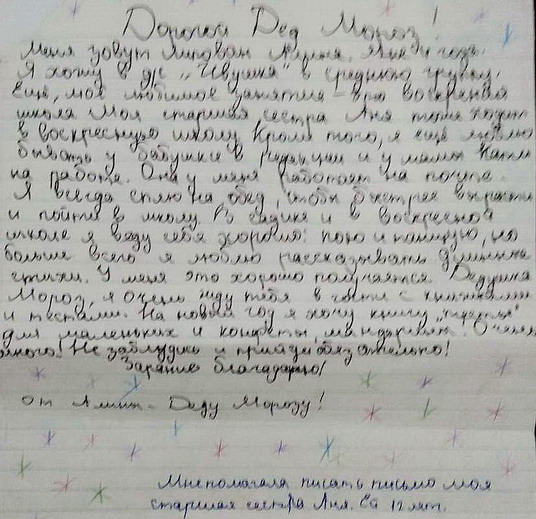 Дорогой Дед Мороз!
Меня зовут Алина. Мне 4 года.
Я хожу в д/с "Ивушка" в среднюю группу.
Ещё, моё любимое занятие - это воскресная
школа. Моя старшая сестра Аня тоже ходит
в воскресную школу. Кроме того, я ещё люблю
бывать у бабушки в редакции и у мамы Кати
на работе. Она у меня работает на почте.
Я всегда сплю на обед, чтобы быстрее вырасти
и пойти в школу. В садике и в воскресной
школе я веду себя хорошо: пою и танцую, но
больше всего я люблю рассказывать длинные
стихи. У меня это хорошо получается. Дедушка
Мороз, я очень жду тебя в гости с книжками
и тестами. На новый год я хочу книгу
для маленьких и конфеты, мандарины! Очень
много. Не заблудись и приходи обязательно!
Зарание благодарю!
от Алины - Деду Морозу!
Мне помогала писать письмо моя
старшая сестра Аня. Ей 12 лет.